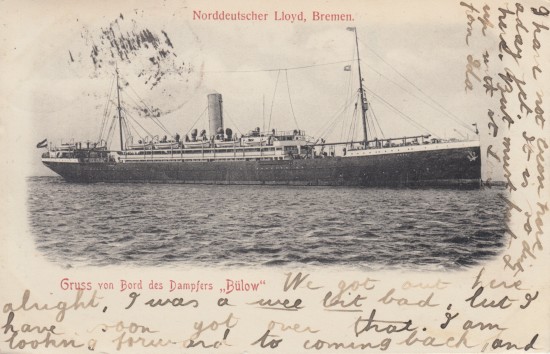 Norddeutscher Lloyd, Bremen.
Gruss von Bord des Dampfers „Bülow“
We got out here
alright, I was a wee bit bad, but I
have soon got over that. I am
looking forward to coming back, and
I have not even had
a day yet. It is
but must put
up with it